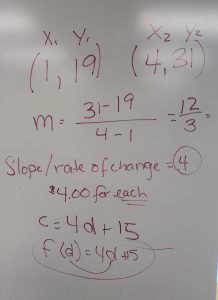 X₁ Y₁ X₂ Y₂
(1, 19) (4, 31)
m = 31-19 / 4-1 = 12/3 =
Slope/rate of change = 4
$4.00 for each
c = 4d + 15
f(d) = 4d + 15